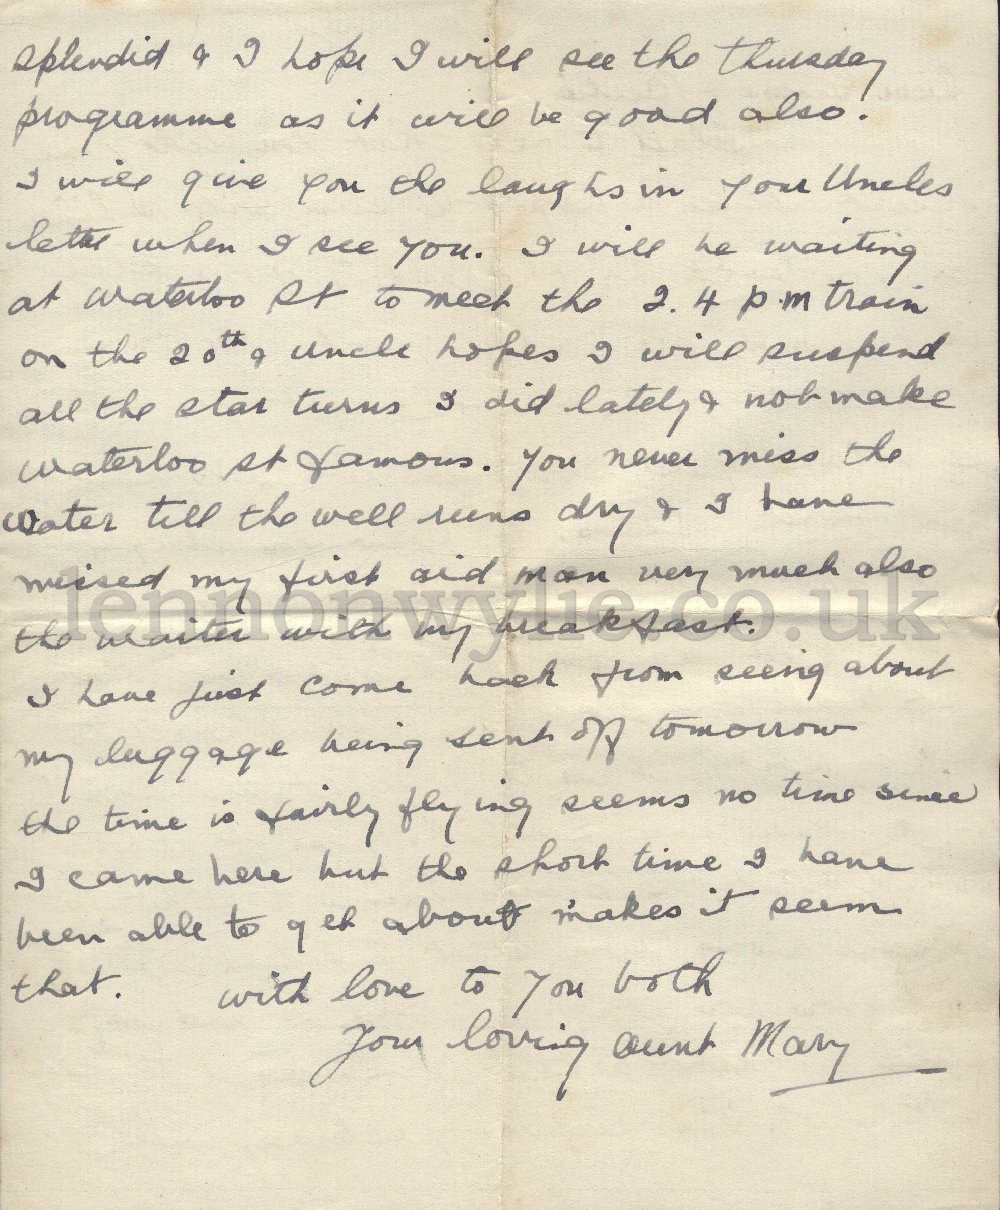 splendid & I hope I will see the Thursday
programme as it will be good also.
I will give you the laughs in your Uncles
letter when I see you. I will be waiting
at Waterloo St to meet the 2.4 p.m train
on the 20th & Uncle hopes I will suspend
all the star turns I did lately & not make
Waterloo St famous. You never miss the
water till the well runs dry & I have
missed my first aid man very much also
the waiter with my breakfast.
I have just come back from seeing about
my luggage being sent off tomorrow
the time is fairly flying seems no time since
I came here but the short time I have
been able to get about makes it seem
that. with love to you both
Your loving aunt Mary
lennonwylie.co.uk